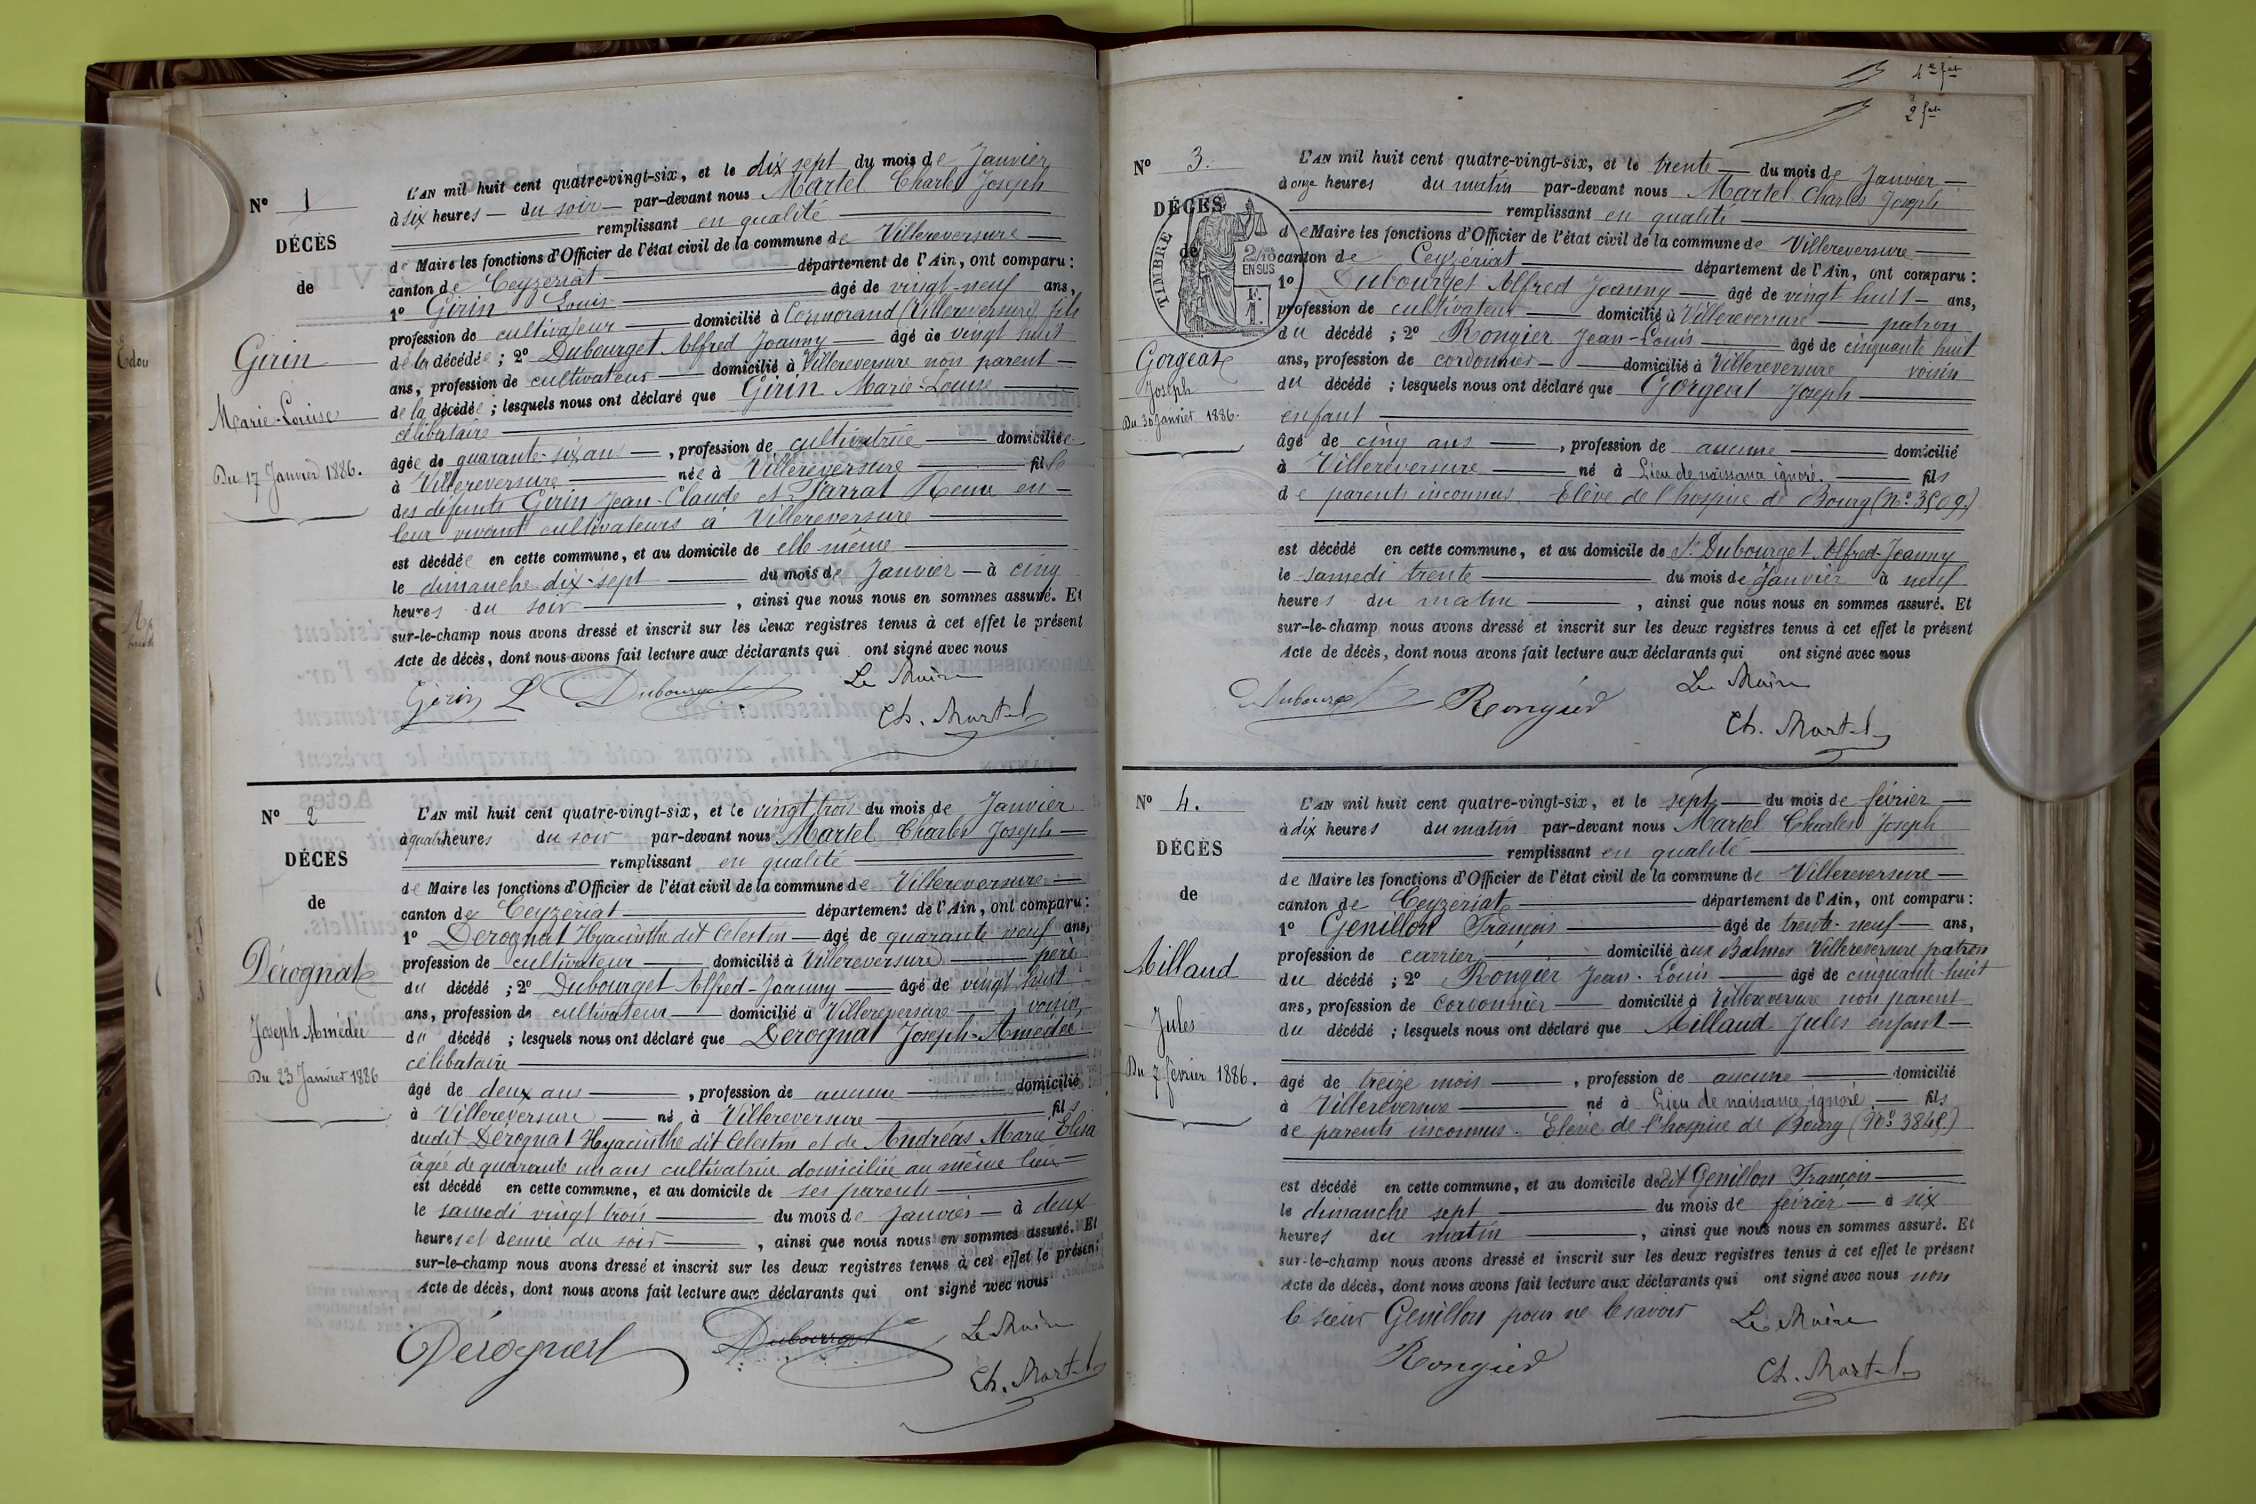 N° 1
DÉCÈS
de
Girin
Marie-Louise
Du 17 Janvier 1886.
L'AN mil huit cent quatre-vingt-six, et le dix sept du mois de Janvier
à six heures du soir par-devant nous Martel Charles Joseph
remplissant en qualité
de Maire les fonctions d'Officier de l'état civil de la commune de Villereversure
canton de Ceyzériat département de l'Ain, ont comparu :
1° Girin Louis âgé de vingt-neuf ans,
profession de cultivateur domicilié à Cormorand (Villereversure) fils
de la décédée ; 2° Dubourget Alfred Joanny âgé de vingt huit
ans, profession de cultivateur domicilié à Villereversure non parent
de la décédée ; lesquels nous ont déclaré que Girin Marie-Louise
célibataire
âgée de quarante-six ans, profession de cultivatrice domiciliée
à Villereversure née à Villereversure fille
des défunts Girin Jean-Claude et Parrat Reine en
leur vivant cultivateurs à Villereversure
est décédée en cette commune, et au domicile de elle même
le dimanche dix-sept du mois de Janvier à cinq
heures du soir, ainsi que nous nous en sommes assuré. Et
sur-le-champ nous avons dressé et inscrit sur les deux registres tenus à cet effet le présent
Acte de décès, dont nous avons fait lecture aux déclarants qui ont signé avec nous
Girin L Dubourget Le Maire
Ch. Martel
N° 2
DÉCÈS
de
Dérognat
Joseph Amédée
Du 23 Janvier 1886
L'AN mil huit cent quatre-vingt-six, et le vingt trois du mois de Janvier
à quatre heures du soir par-devant nous Martel Charles Joseph
remplissant en qualité
de Maire les fonctions d'Officier de l'état civil de la commune de Villereversure
canton de Ceyzériat département de l'Ain, ont comparu :
1° Dérognat Hyacinthe dit Célestin âgé de quarante neuf ans,
profession de cultivateur domicilié à Villereversure père
du décédé ; 2° Dubourget Alfred-Joanny âgé de vingt huit
ans, profession de cultivateur domicilié à Villereversure voisin
du décédé ; lesquels nous ont déclaré que Dérognat Joseph-Amédée
célibataire
âgé de deux ans, profession de aucune domicilié
à Villereversure né à Villereversure fils
dudit Dérognat Hyacinthe dit Célestin et de Andréas Marie Elisa
âgée de quarante un ans cultivatrice domiciliée au même lieu
est décédé en cette commune, et au domicile de ses parents
le samedi vingt trois du mois de Janvier à deux
heures et demie du soir, ainsi que nous nous en sommes assuré. Et
sur-le-champ nous avons dressé et inscrit sur les deux registres tenus à cet effet le présent
Acte de décès, dont nous avons fait lecture aux déclarants qui ont signé avec nous
Dérognat Dubourget Le Maire
Ch. Martel
1er fet
2 fet
N° 3.
DÉCÈS
de
TIMBRE
2/10
EN SUS
Gorgeat
Joseph
Du 30 Janvier 1886.
L'AN mil huit cent quatre-vingt-six, et le trente du mois de Janvier
à onze heures du matin par-devant nous Martel Charles Joseph
remplissant en qualité
de Maire les fonctions d'Officier de l'état civil de la commune de Villereversure
canton de Ceyzériat département de l'Ain, ont comparu :
1° Dubourget Alfred Joanny âgé de vingt huit ans,
profession de cultivateur domicilié à Villereversure patron
du décédé ; 2° Rongier Jean-Louis âgé de cinquante huit
ans, profession de cordonnier domicilié à Villereversure voisin
du décédé ; lesquels nous ont déclaré que Gorgeat Joseph
enfant
âgé de cinq ans, profession de aucune domicilié
à Villereversure né à Lieu de naissance ignoré. fils
de parents inconnus. Elève de l'hospice de Bourg (N°: 3509.)
est décédé en cette commune, et au domicile de Sr Dubourget Alfred-Joanny
le samedi trente du mois de Janvier à neuf
heures du matin, ainsi que nous nous en sommes assuré. Et
sur-le-champ nous avons dressé et inscrit sur les deux registres tenus à cet effet le présent
Acte de décès, dont nous avons fait lecture aux déclarants qui ont signé avec nous
Dubourget Rongier Le Maire
Ch. Martel
N° 4.
DÉCÈS
de
Millaud
Jules
Du 7 février 1886.
L'AN mil huit cent quatre-vingt-six, et le sept du mois de février
à dix heures du matin par-devant nous Martel Charles Joseph
remplissant en qualité
de Maire les fonctions d'Officier de l'état civil de la commune de Villereversure
canton de Ceyzériat département de l'Ain, ont comparu :
1° Genillon François âgé de trente-neuf ans,
profession de carrier domicilié aux Balmes Villereversure patron
du décédé ; 2° Rongier Jean-Louis âgé de cinquante-huit
ans, profession de cordonnier domicilié à Villereversure non parent
du décédé ; lesquels nous ont déclaré que Millaud Jules enfant
âgé de treize mois, profession de aucune domicilié
à Villereversure né à Lieu de naissance ignoré fils
de parents inconnus. Elève de l'hospice de Bourg (N°: 3848)
est décédé en cette commune, et au domicile dudit Genillon François
le dimanche sept du mois de février à six
heures du matin, ainsi que nous nous en sommes assuré. Et
sur-le-champ nous avons dressé et inscrit sur les deux registres tenus à cet effet le présent
Acte de décès, dont nous avons fait lecture aux déclarants qui ont signé avec nous non
le sieur Genillon pour ne le savoir Le Maire
Rongier Ch. Martel